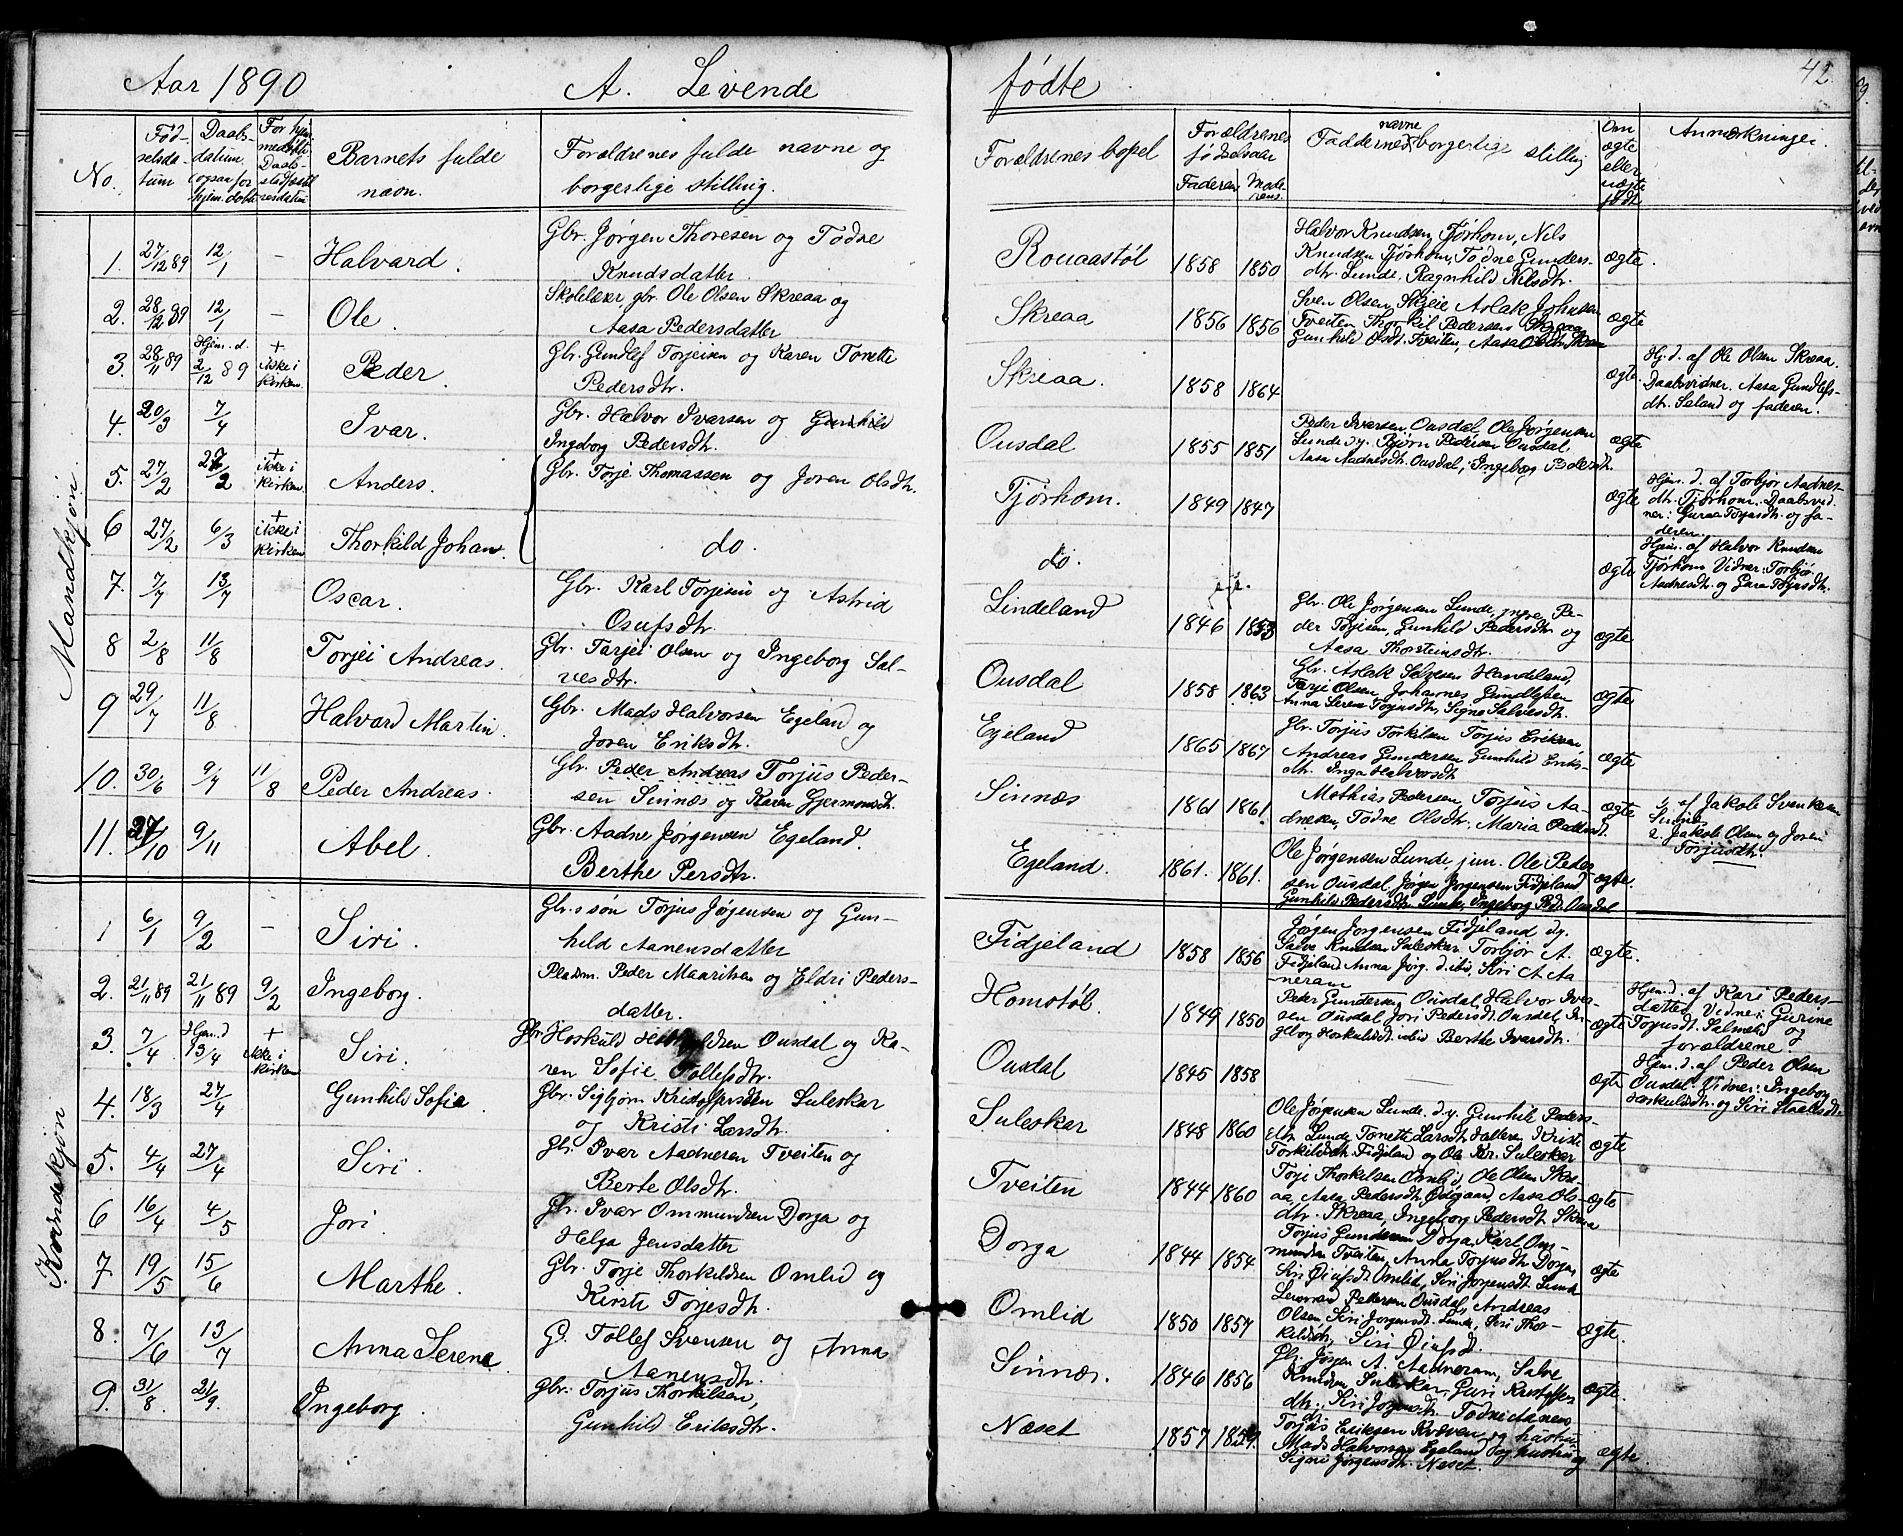 Aar 1890 A. Levende fødte 42
No.
Fødselsdatum
Daabsdatum (ogsaa for hjem.døbte
For hjemmedøbte Daabsstadfæstelsesdatum
Barnets fulde navn.
Forældrenes fulde navne og borgerlige stilling.
Forældrenes bopel
Forældrenes fødselsaar
Faderen Moderens.
Faddernes navne borgerlige stilling
Om ægte eller uægte født
Anmærkninger.
Mandkjøn
1. 27/12 89 12/1 - Halvard. Gbr. Jørgen Thoresen og Todne Knudsdatter. 1858 1850 Halvor Knudsen, Tjørhom, Nils
Knudsen Tjørhom, Todne Gundersdtr. Lunde, Ragnhild Nilsdtr. ægte.
2. 28/12 89 12/1 - Ole. Skolelærer gbr. Ole Olsen Skreaa og
Aasa Pedersdatter Skreaa 1856 1856 Sven Olsen, Skjeie Aslak Johnsen
Tveiten, Thorkil Pedersen Skreaa
Gunhild Olsd. Tveiten, Aasa ægte
3. 28/11 89 Hjem. d. 2/12 89 + ikke i kirken Peder. Gbr. Gundlef Torjeisen og Karen Tonette
Pedersdtr. Skreaa. 1858 1864 ægte. Hj. d. af Ole Olsen Skreaa.
Daabsvidner. Aasa Gundlefsdtr. Seland og faderen.
4. 20/3 7/4 Ivar. Gbr. Halvor Ivarsen og
Ingeborg Pedersdtr. Ousdal 1855 1851 Peder Iversen, Ousdal, Ole Jørgensen
Lunde d.y. Bjørn Pedersen Ousdal,
Aasa Aadnesdtr. Ousdal, Ingeborg Pedersdtr. ægte
5. 27/2 27/2 + ikke i kirken Anders. Gbr. Torje Thomassen og Joren Olsdtr. Tjørhom. 1849 1847 ægte Hjem. d. af Torbjør Aadnesdtr. Tjørhom. Daabsvidner: Guraa Torjusdtr. og faderen.
6 27/2 6/3 + ikke i kirken Thorkild Johan. do. do. ægte Hjem. af Halvor Knudsen
Tjørhom Vidner: Torbjør
Aadnesdtr. og Gura Torjusdtr.
7. 7/7 13/7 Oscar. Gbr. Karl Torjesen og Astrid
Osufsdtr. Lindeland 1846 1853 Gbr. Ole Jørgensen Lunde, yngre, Peder Torjisen, Gunhild Pedersdtr og
Aasa Thorsteinsdtr. ægte
8 2/8 11/8 Torjei Andreas. Gbr. Tarjei Olsen og Ingeborg Salvesdtr. Ousdal 1858 1863 Gbr. Aslak Salvesen Handeland,
Tarje Olsen, Johannes Gundlefsen
Anna Serine Torjusdtr, Signe Salvesdtr. ægte
9 29/7 11/8 Halvard Martin. Gbr. Mads Halvorsen Egeland og
Joren Eriksdtr. Egeland 1865 1867 Gbr. Torjus Torkilsen Torjus Eriksen,
Andreas Gundersen Gunhild Eriksdtr. Inga Halvorsdtr. ægte
10. 30/6 9/7 11/8 Peder Andreas. Gbr. Peder Andreas Torjus Pedersen Sinnæs og Karen Gjermundsdtr. Sinnæs 1861 1861. Mathias Pedersen, Torjus Aadnesen, Todne Olsdtr. Maria Pedersdtr. ægte 1. af Jakob Svenksen
Sinnæs
2. Jakob Olsen og Joren
Torjusdtr.
11. 27/10 9/11 Abel. Gbr. Aadne Jørgensen Egeland.
Berthe Persdtr. Egeland. 1861. 1861. Ole Jørgensen Lunde, jun. Ole Pedersen Ousdal, Jørgen Jørgensen Fidjeland,
Gunhild Pedersdtr. Lunde, Ingeborg Pedr. Ousdal ægte.
Kvindekjøn
1 6/1 9/2 - Siri. Gbr.s søn Torjus Jørgensen og Gunhild Aanensdatter Fidjeland 1858 1856 Jørgen Jorgensen Fidjeland d.y.
Salve Knudsen Suleskar, Torbjør A.
Fidjeland Anna Jørg. d. ibid, Siri A. Aaneram ægte.
2. 21/11 89 21/11 89 9/2 Ingeborg. Pladsm. Peder Mauritsen og Eldri Pedersdatter. Homstøl 1849 1850 Peder Gundersen Ousdal, Halvor Iversen Ousdal, Jori Pedersdt. Ousdal, Ingeborg Hoskuldsdt. ibid Berthe Ivarsdtr. ægte Hjem. d. af Kari Pedersdatter Vidner: Gurine
Torjusdt. Salmeli og
forældrene.
3. 7/4 Hjem. d 13/4 + ikke i kirken Siri. Gbr. Hoskuld Hoskuldsen Ousdal og Karen Sofie Tollefsdtr. Ousdal 1845 1858 ægte Hjem. d. af Peder Olsen
Ousdal. Vidner: Ingeborg
Hoskuldsdt. og Siri
4. 18/3 27/4 Gunhild Sofie. Gbr. Sigbjørn Kristoffersen Suleskar
og Kristi Larsdtr. Suleskar 1848 1860 Ole Jørgensen Lunde d.y. Gunhild Pedersdtr. Lunde, Tonette Larsdt. Kristi
Torkildsdt. Fidjeland og Ole Kr. Suleskar ægte
5. 4/4 27/4 Siri. Gbr. Ivar Aadnesen Tveiten og
Berte Olsdtr. Tveiten 1844 1860 Torje Thorkelsen Omlid, Ole Olsen Skreaa, Aasa Pedersdt. Ødegaard, Aasa Olsdtr. Skreaa, Ingeborg Pedersdt. Skreaa ægte
6 16/4 4/5 Jori. Gbr. Ivar Ommundsen Dorga og
Helga Jensdatter Dorga 1844 1854 Torjus Gundersen Dorga, Karl Ommundsen Tveiten, Anna Torjusdt. Dorga,
Siri Øiufsdt. Omlid, Siri Jørgensdt. Lunde ægte
7. 19/5 15/6 Marthe. Gbr. Torje Thorkildsen Omlid og
Kirsti Torjesdtr. Omlid 1850 1857 Pedersen Ousdal, Andreas
Olsen, Siri Jorgensdt. Lunde, Siri Thorkildsdtr, Siri Øiufsd. ægte.
8. 7/6 13/7 Anna Serena. G. Tollef Svensen og Anna
Aanensdt. Sinnæs. 1846 1856 Gbr. Jørgen A. Aadneram, Salve
Knudsen Suleskar, Guri Kristoffersdtr., Siri Jorgensdt. Todne Aanensdt. ægte.
9. 31/8 21/9. Ingeborg. Gbr. Torjus Thorkilsen,
Gunhild Eriksdtr. Næset 1857 Torjus Eriksen Kvæven og hustru,
Mads Halvorsen Egeland og hustru og
Signe Jørgensdt. Næset. ægte.